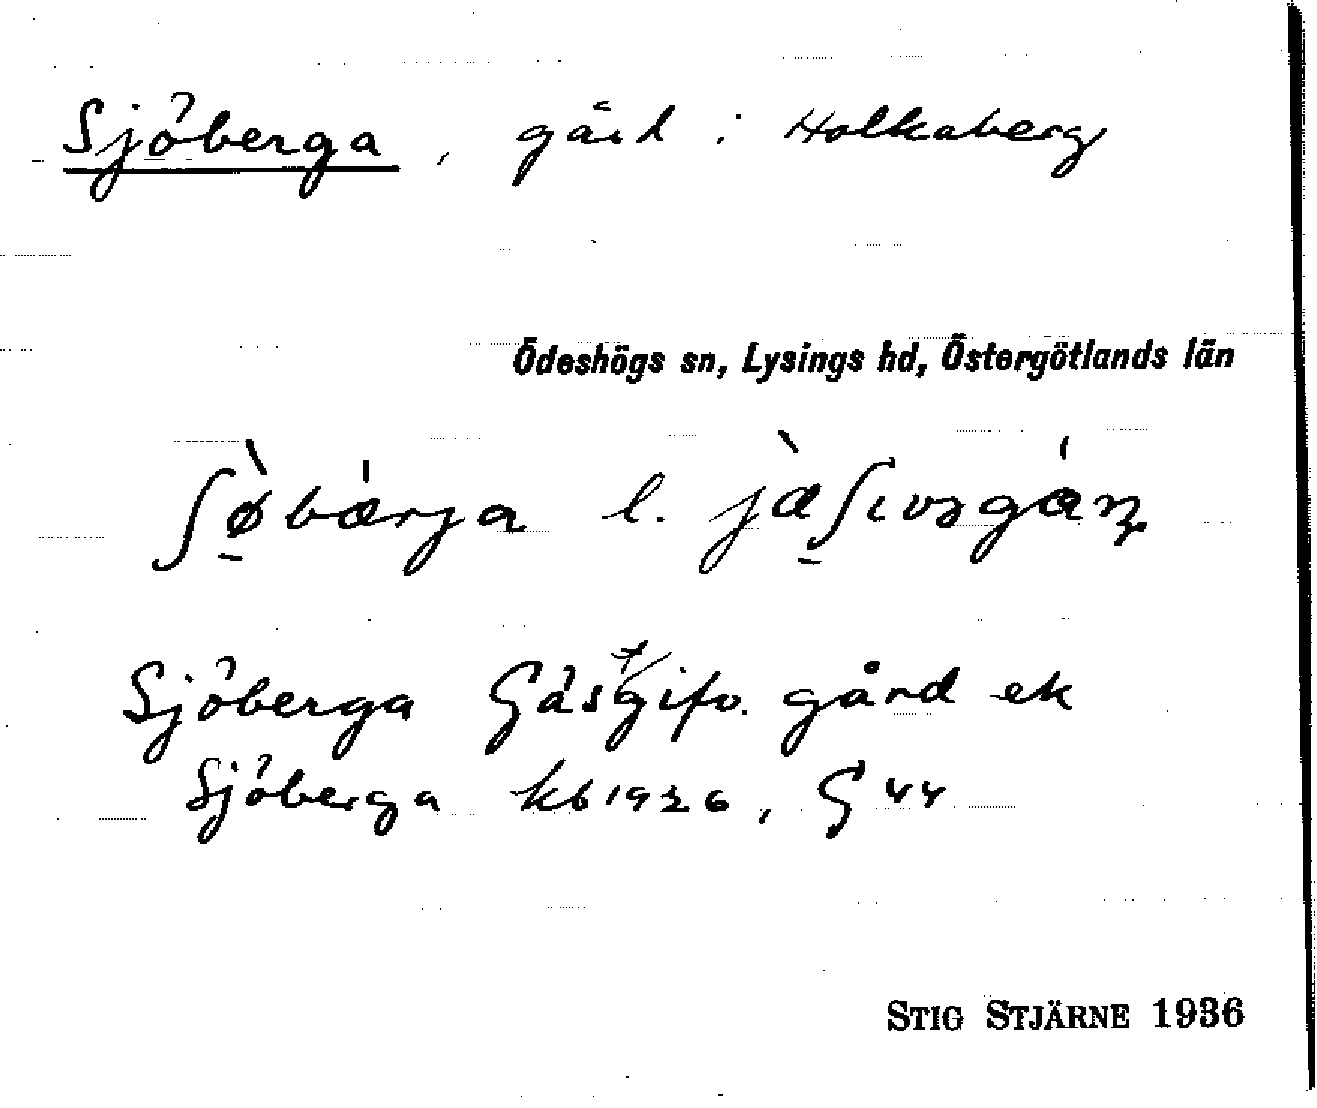 Sjöberga, gård i Holkaberg
Ödeshögs sn, Lysings hd, Östergötlands län
ʃø̀bǽrja l. jæ̀ʃɩvɜgán
Sjöberga Gästgifv. gård ek
Sjöberga kb 1926, G 44
STIG STJÄRNE 1936